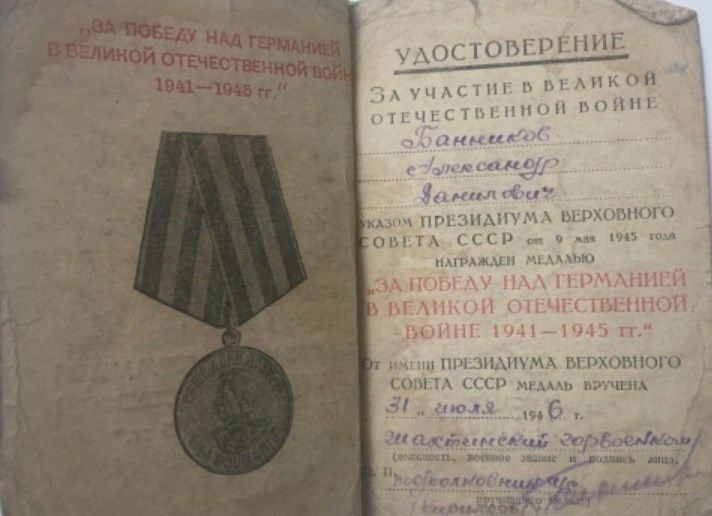 „ЗА ПОБЕДУ НАД ГЕРМАНИЕЙ
В ВЕЛИКОЙ ОТЕЧЕСТВЕННОЙ ВОЙН
1941—1945 гг.“
НАШЕ ДЕЛО ПРАВОЕ
МЫ ПОБЕДИЛИ
УДОСТОВЕРЕНИЕ
ЗА УЧАСТИЕ В ВЕЛИКОЙ
ОТЕЧЕСТВЕННОЙ ВОЙНЕ
Банников
Александр
Данилович
УКАЗОМ ПРЕЗИДИУМА ВЕРХОВНОГО
СОВЕТА СССР от 9 мая 1945 года
НАГРАЖДЕН МЕДАЛЬЮ
„ЗА ПОБЕДУ НАД ГЕРМАНИЕЙ
В ВЕЛИКОЙ ОТЕЧЕСТВЕННОЙ
ВОЙНЕ 1941—1945 гг.“
ОТ ИМЕНИ ПРЕЗИДИУМА ВЕРХОВНОГО
СОВЕТА СССР МЕДАЛЬ ВРУЧЕНА
31 „ июля 1946 г.
Шахтинский горвоенком
(должность, воинское звание и подпись лица,
П. подполковник
вручившего медаль)
(Кирилов)